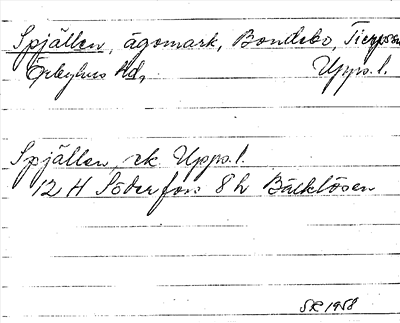 Spjällen, ägomark, Bondebo, Tierps sn
Örbyhus hd, Upps. l.
Spjällen, ek. Upps. l.
12 H Söderfors 8 h Bälklösen
SR 1958